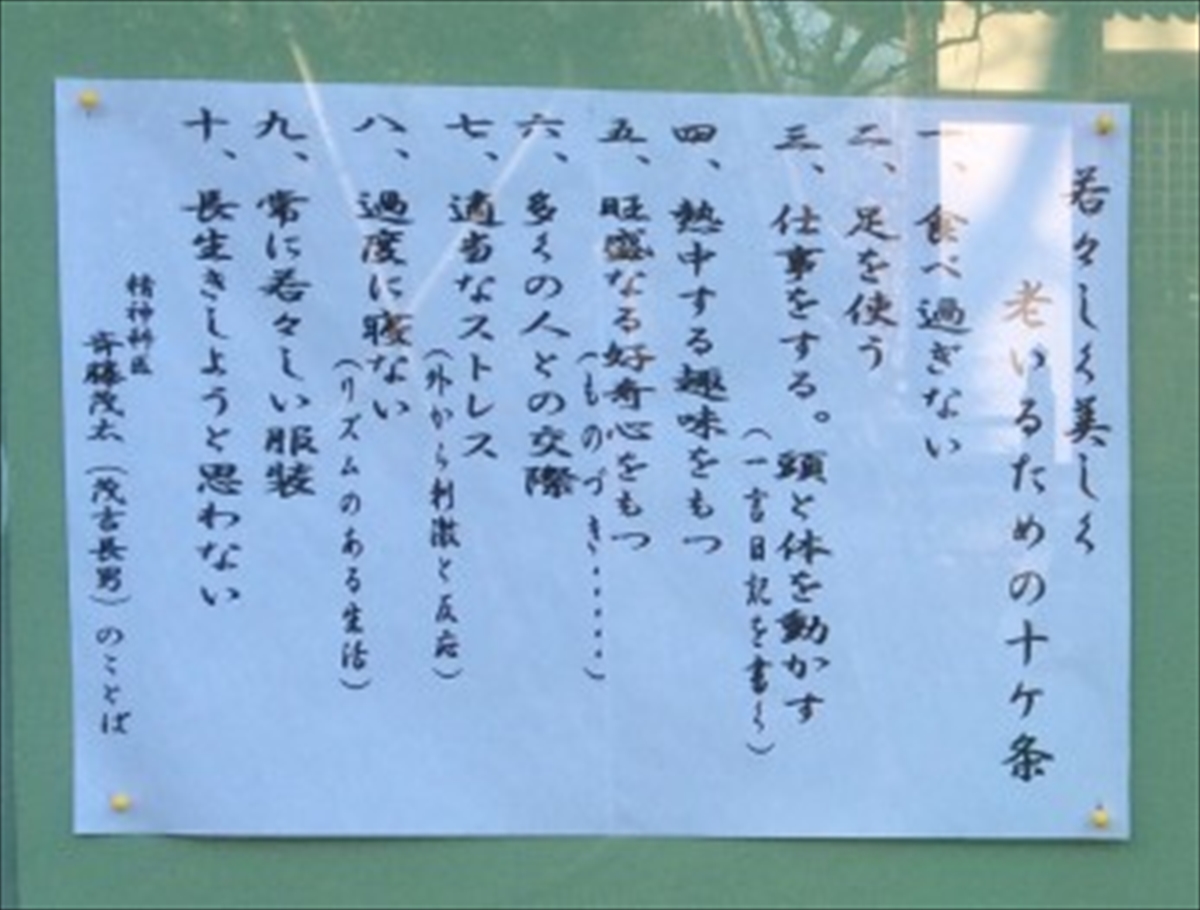 若々しく美しく
老いるための十ケ条
一、食べ過ぎない
二、足を使う
三、仕事をする。頭と体を動かす
(一言日記を書く)
四、熱中する趣味をもつ
五、旺盛なる好奇心をもつ
(ものずき・・・・・)
六、多くの人との交際
七、適当なストレス
(外から刺激と反応)
八、過度に寝ない
(リズムのある生活)
九、常に若々しい服装
十、長生きしようと思わない
精神科医
斉藤茂太(茂吉長男)のことば